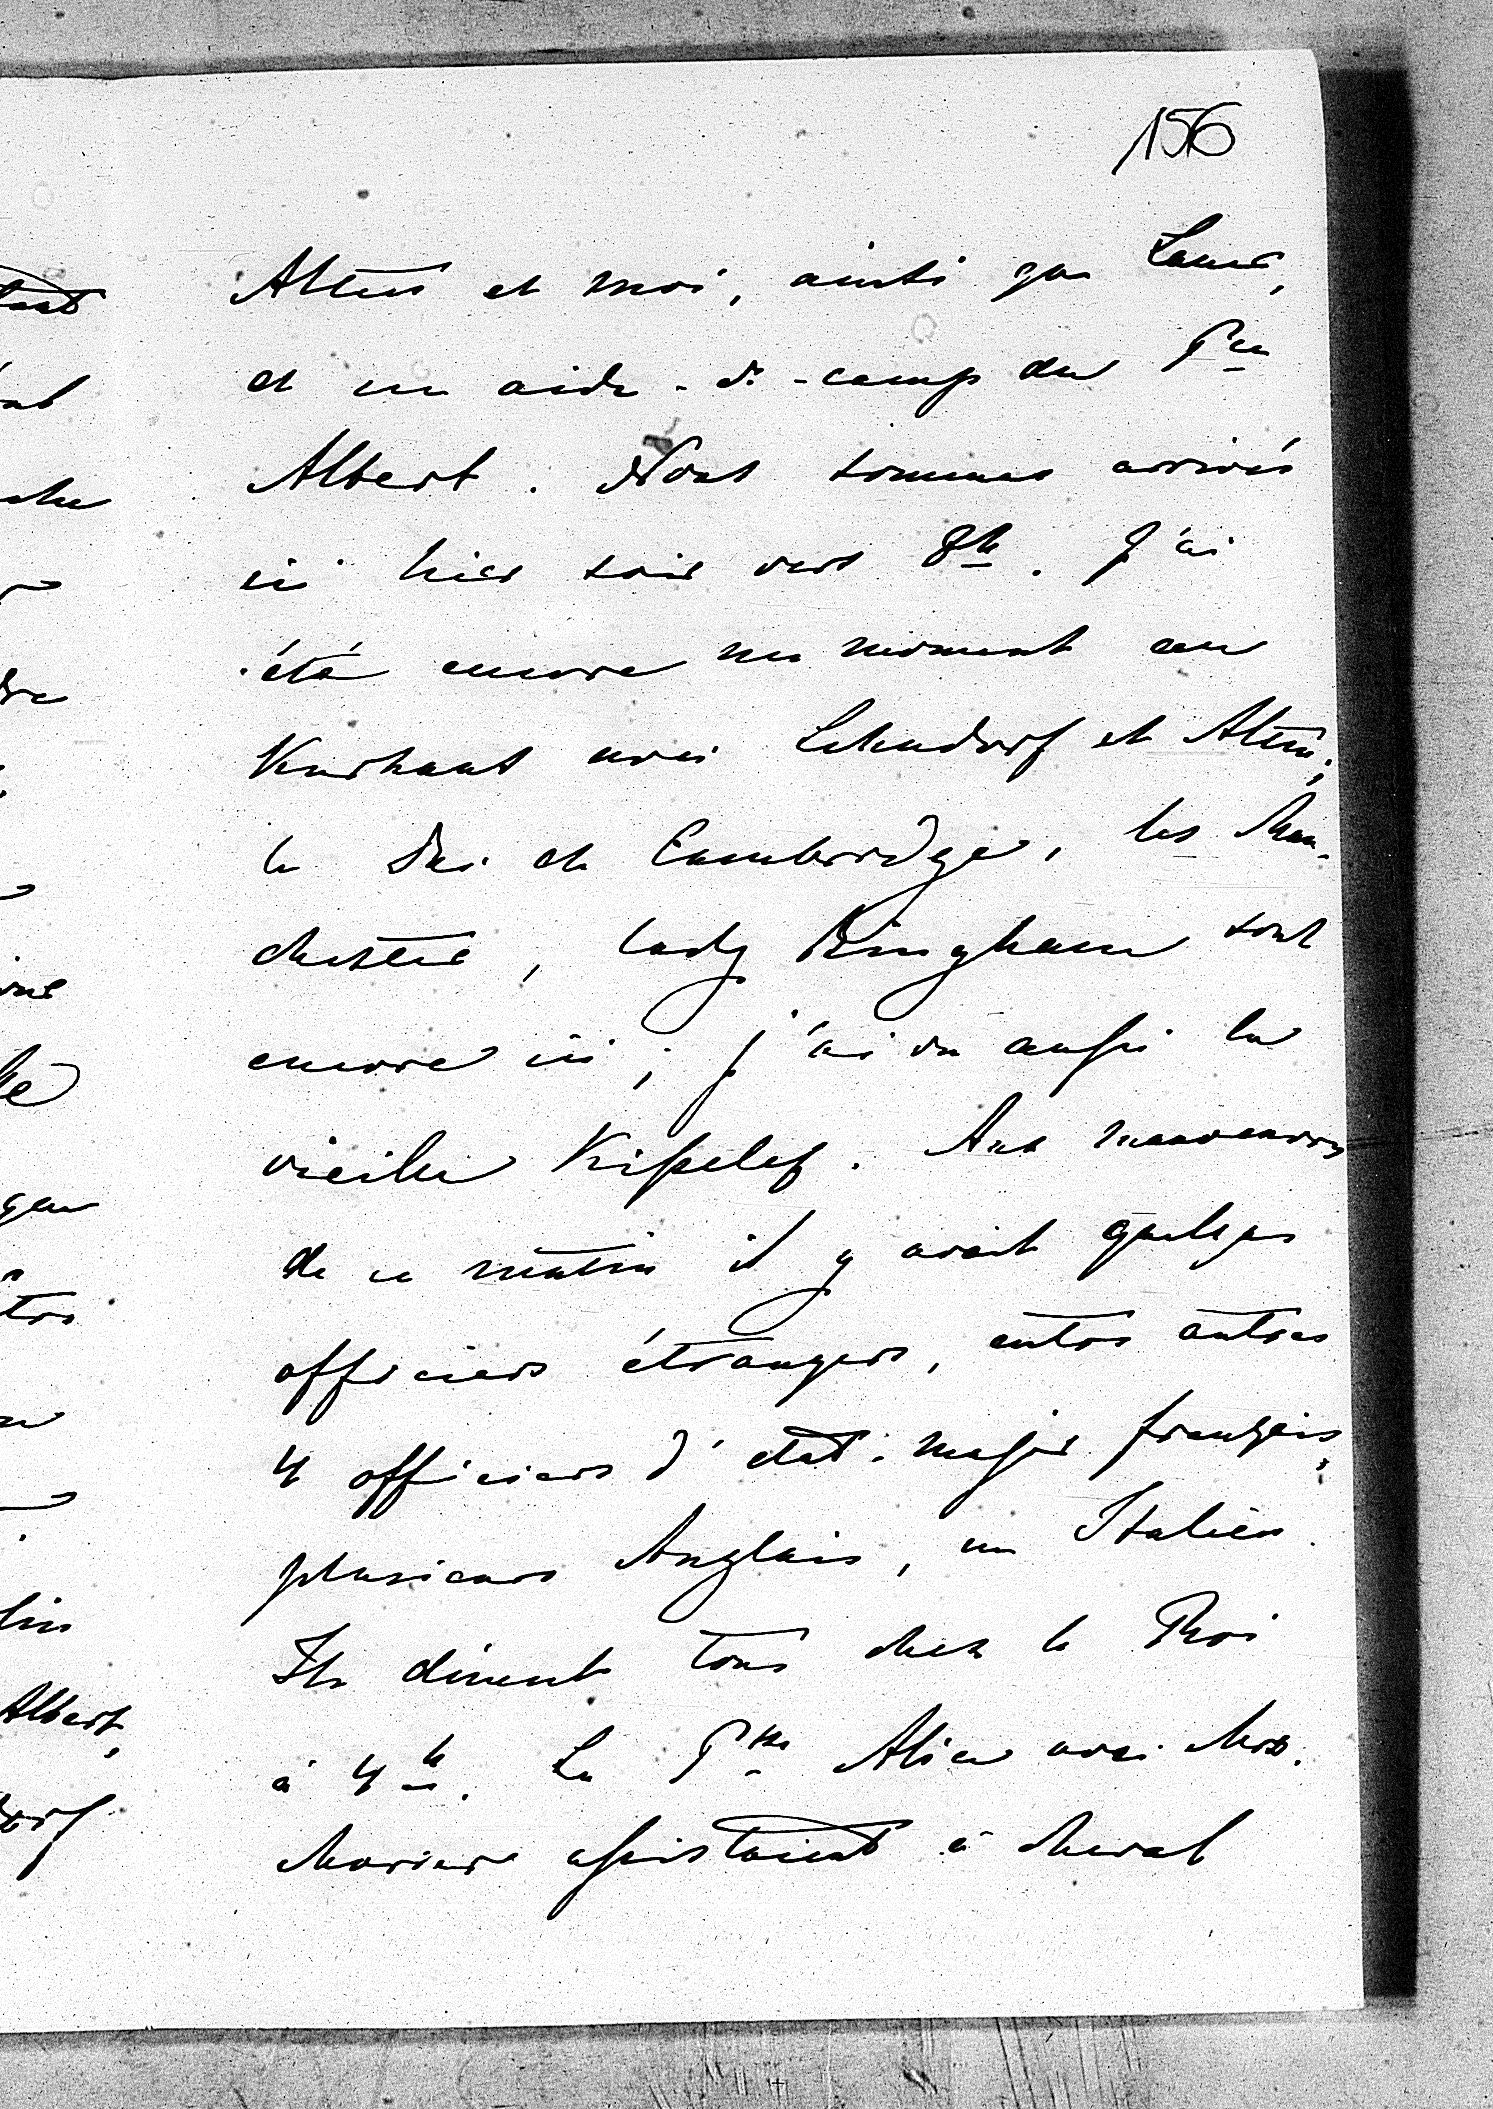 156
et moi, ainsi que
et un aide-de-camp du Pce
Albert. Nous sommes arrivés
ici hier soir vers 8h. J'ai
été encore un moment au
Kurhaus avec Lehndorf et
le Duc de Cambridge, les Man-
chester, lady Bingham sont
encore ici; j'ai vu aussi la
vieille Kisselef. Aux manœuvres
de ce matin il y avait quelques
officiers étrangers, entre autres
4 officiers d'état-major français,
plusieurs Anglais, un Italien.
Ils dînent tous chez le Roi
à 4h. La Psse Alice avec Mrs.
assistaient à cheval
Albert,